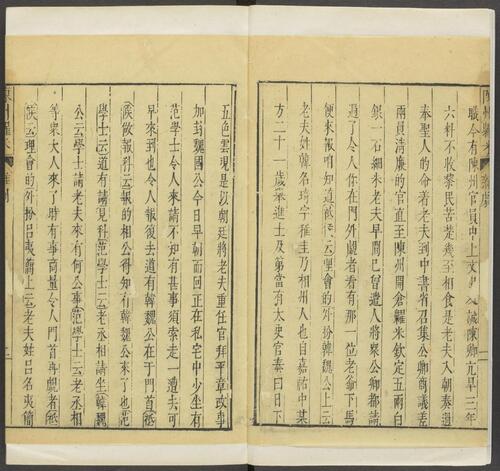 職今有陳州官員申上文書說陳州亢旱三年
六料不收黎民苦楚幾至相食是老夫入朝奏過
奉聖人的命着老夫到中書省召集公卿商議差
兩員清廉的官直至陳州開倉糶米欽定五兩白
銀一石細米老夫早間已曾遣人將衆公卿都請
過了令人你在門外覷者看有那一位老爺下馬
便來報咱知道祗候云理會的外扮韓魏公上云
老夫姓韓名琦字稚圭乃相州人也自嘉祐中某
方二十一歲舉進士及第當有太史官奏曰日下
五色雲現是以朝廷將老夫重任官拜平章政事
加封魏國公今日早朝而回正在私宅中少坐有
范學士令人來請不知有甚事須索走一遭去可
早來到也令人報復去道有韓魏公在于門首祗
候做報科云報的相公得知有韓魏公來了也范
學士云道有請見科范學士云老丞相請坐韓魏
公云學士請老夫來有何公事范學士云老丞相
等衆大人來了時有事商量令人門首再覷者祗
候云理會的外扮呂夷簡上云老夫姓呂名夷簡
陳州糶米
雜劇
二